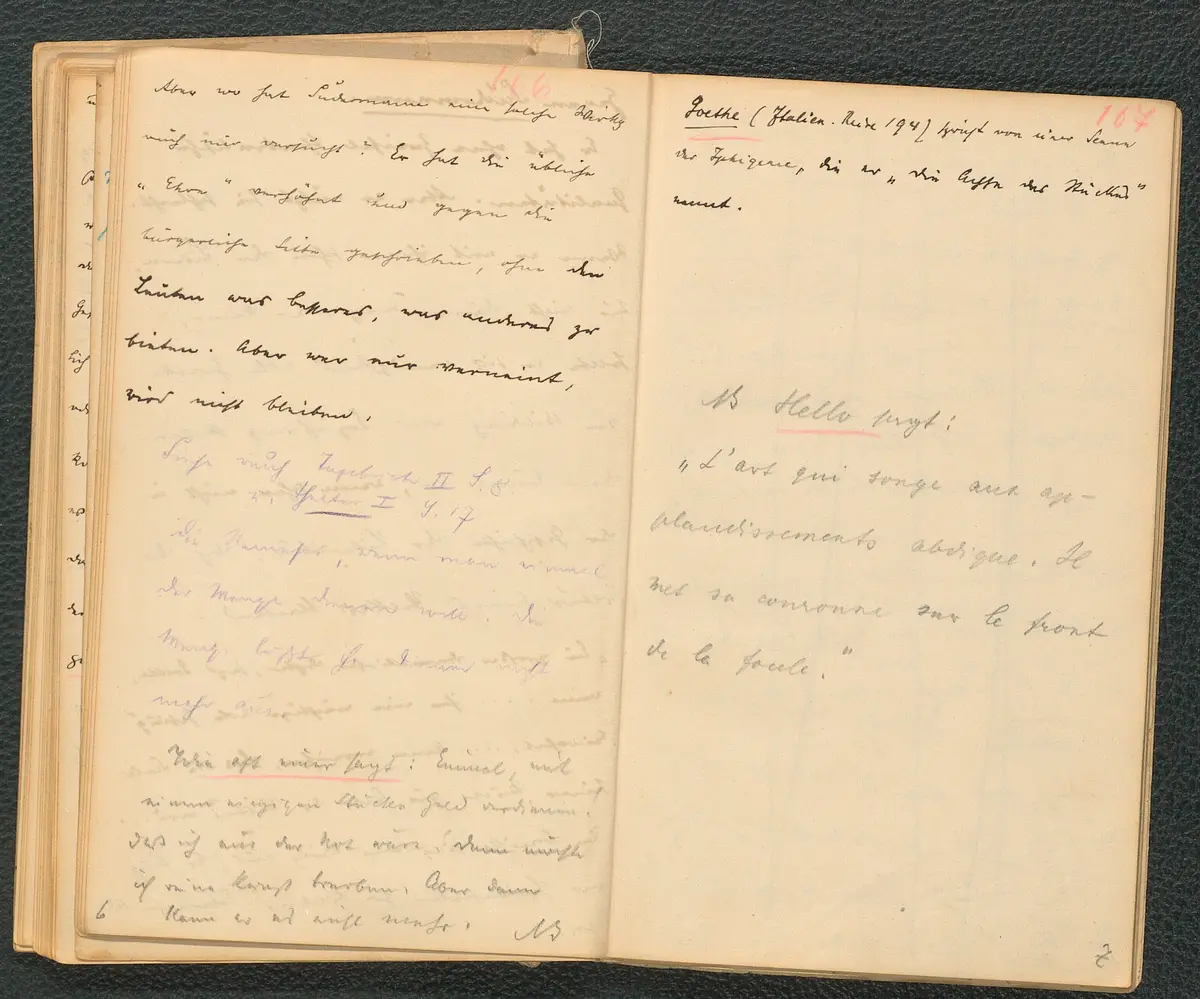 166
Aber wo hat Sudermann eine solche Wirkg
auch nur versucht? Er hat die übliche
„Ehre“ verhöhnt und gegen die
bürgerliche Sitte geschrieben, ohne den
Leuten was besseres, was anderes zu
bieten. Aber wer nur verneint,
wird nicht bleiben.
Siehe auch Tagebuch II S. 8.
u. Theater I S. 17
Die Kunst, wenn man einmal
der Menge dienen will. Die
Menge läßt
mehr
Wie oft einer sagt: Einmal mit
einem einzigen Stücke Geld verdienen,
daß ich aus der Not wäre! Dann möchte
ich reine Kunst treiben. Aber dann
kann er es nicht mehr.
NB
6
167
Goethe (Italien. Reise 194) spricht von einer Scene
der Iphigenie, die er „die Achse des Stückes“
nennt.
NB Hello sagt:
„L'art qui songe aux ap-
plaudissements abdique. Il
met sa couronne sur le front
de la foule.“
7